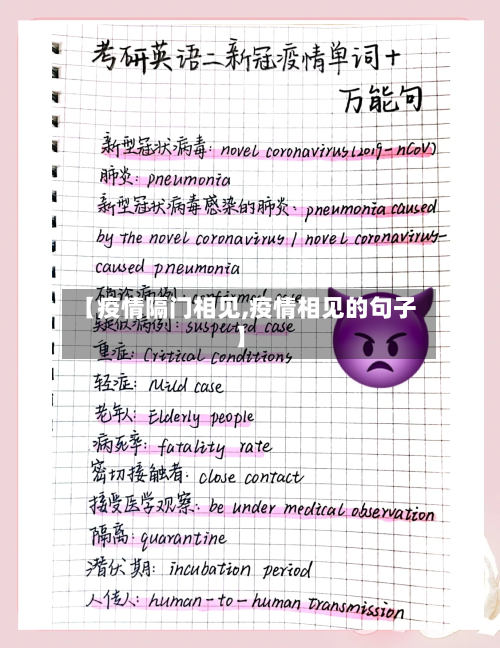 考研英语二新冠疫情单词+
万能句
新型冠状病毒: novel coronavirus(2019-nCoV)
肺炎: pneumonia
新型冠状病毒感染的肺炎: pneumonia caused
by the novel coronavirus / novel coronavirus-
caused pneumonia
【疫情隔门相见,疫情相见的句子
】
疑似病例: suspected case
重症: Critical conditions
轻症: Mild case
老年人: Elderly people
病死率: fatality rate
密切接触者: close contact
接受医学观察: be under medical observation
隔离: quarantine
潜伏期: incubation period
人传人: human-to-human transmission